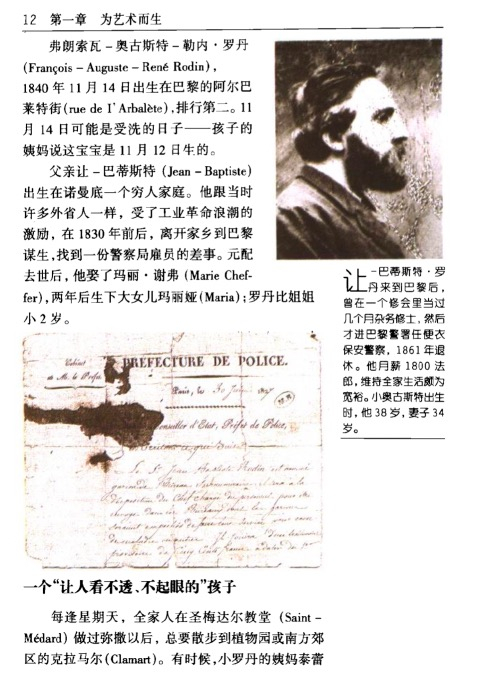 12 第一章 为艺术而生
弗朗索瓦－奥古斯特－勒内·罗丹
(François－Auguste－René Rodin),
1840 年 11 月 14 日出生在巴黎的阿尔巴
莱特街(rue de l'Arbalète),排行第二。11
月 14 日可能是受洗的日子——孩子的
姨妈说这宝宝是 11 月 12 日生的。
父亲让－巴蒂斯特 (Jean－Baptiste)
出生在诺曼底一个穷人家庭。他跟当时
许多外省人一样，受了工业革命浪潮的
激励，在 1830 年前后，离开家乡到巴黎
谋生,找到一份警察局雇员的差事。元配
去世后，他娶了玛丽·谢弗 (Marie Chef-
fer),两年后生下大女儿玛丽娅(Maria);罗丹比姐姐
小 2 岁。
让－巴蒂斯特·罗
丹来到巴黎后，
曾在一个修会里当过
几个月杂务修士，然后
才进巴黎警署任便衣
保安警察，1861 年退
休。他月薪 1800 法
郎，维持全家生活颇为
宽裕。小奥古斯特出生
时，他 38 岁，妻子 34
岁。
Cabinet
PRÉFECTURE DE POLICE.
de M. le Préfet
Paris, le
Conseiller d'État, Préfet de Police,
一个“让人看不透、不起眼的”孩子
每逢星期天，全家人在圣梅达尔教堂 (Saint－
Médard) 做过弥撒以后，总要散步到植物园或南方郊
区的克拉马尔(Clamart)。有时候,小罗丹的姨妈泰蕾